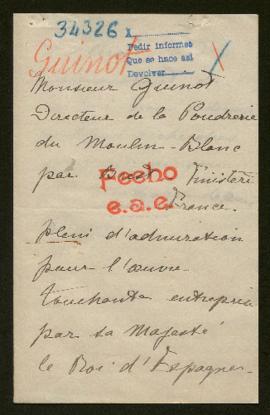 34326 x
Pedir informes
Que se hace así
Devolver
Guinot
X
Monsieur Guinot
Directeur de la Poudrerie
du Moulin-Blanc
par Brest Finistère
Fecho
France.
e.a.e.
plein d'admiration
pour l'œuvre
touchante entreprise
par sa Majesté
le Roi d'Espagne